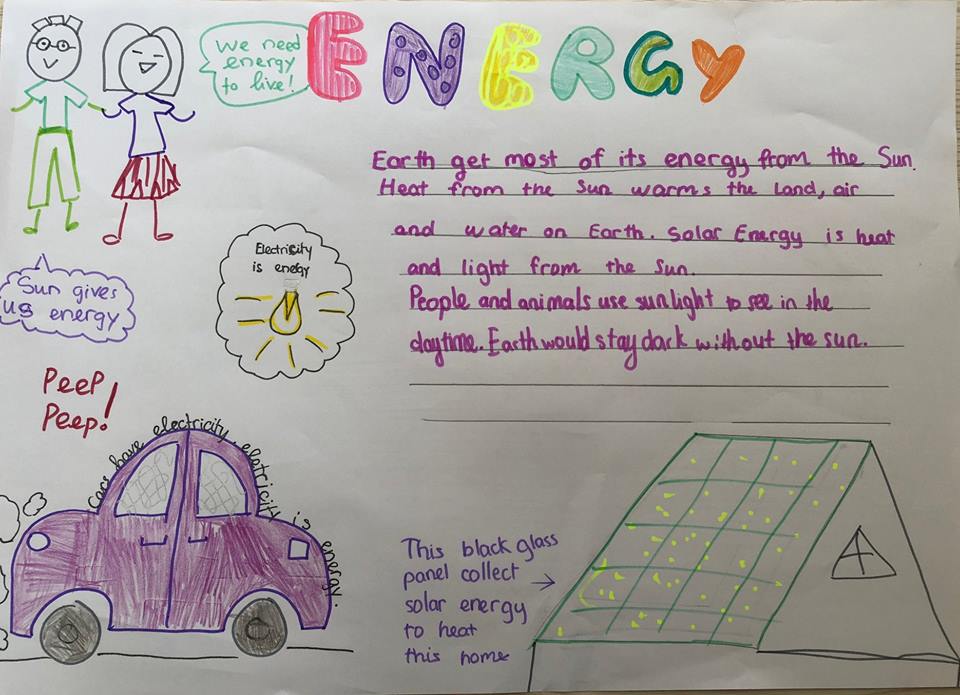 We need
energy
to live!
ENERGY
Earth get most of its energy from the Sun.
Heat from the Sun warms the Land, air
and water on Earth. Solar Energy is heat
and light from the Sun.
People and animals use sunlight to see in the
daytime. Earth would stay dark without the sun.
Electricity
is energy
Sun gives
us energy
Peep
Peep!
Cars have electricity, eletricity is energy.
This black glass
panel collect
solar energy
to heat
this home